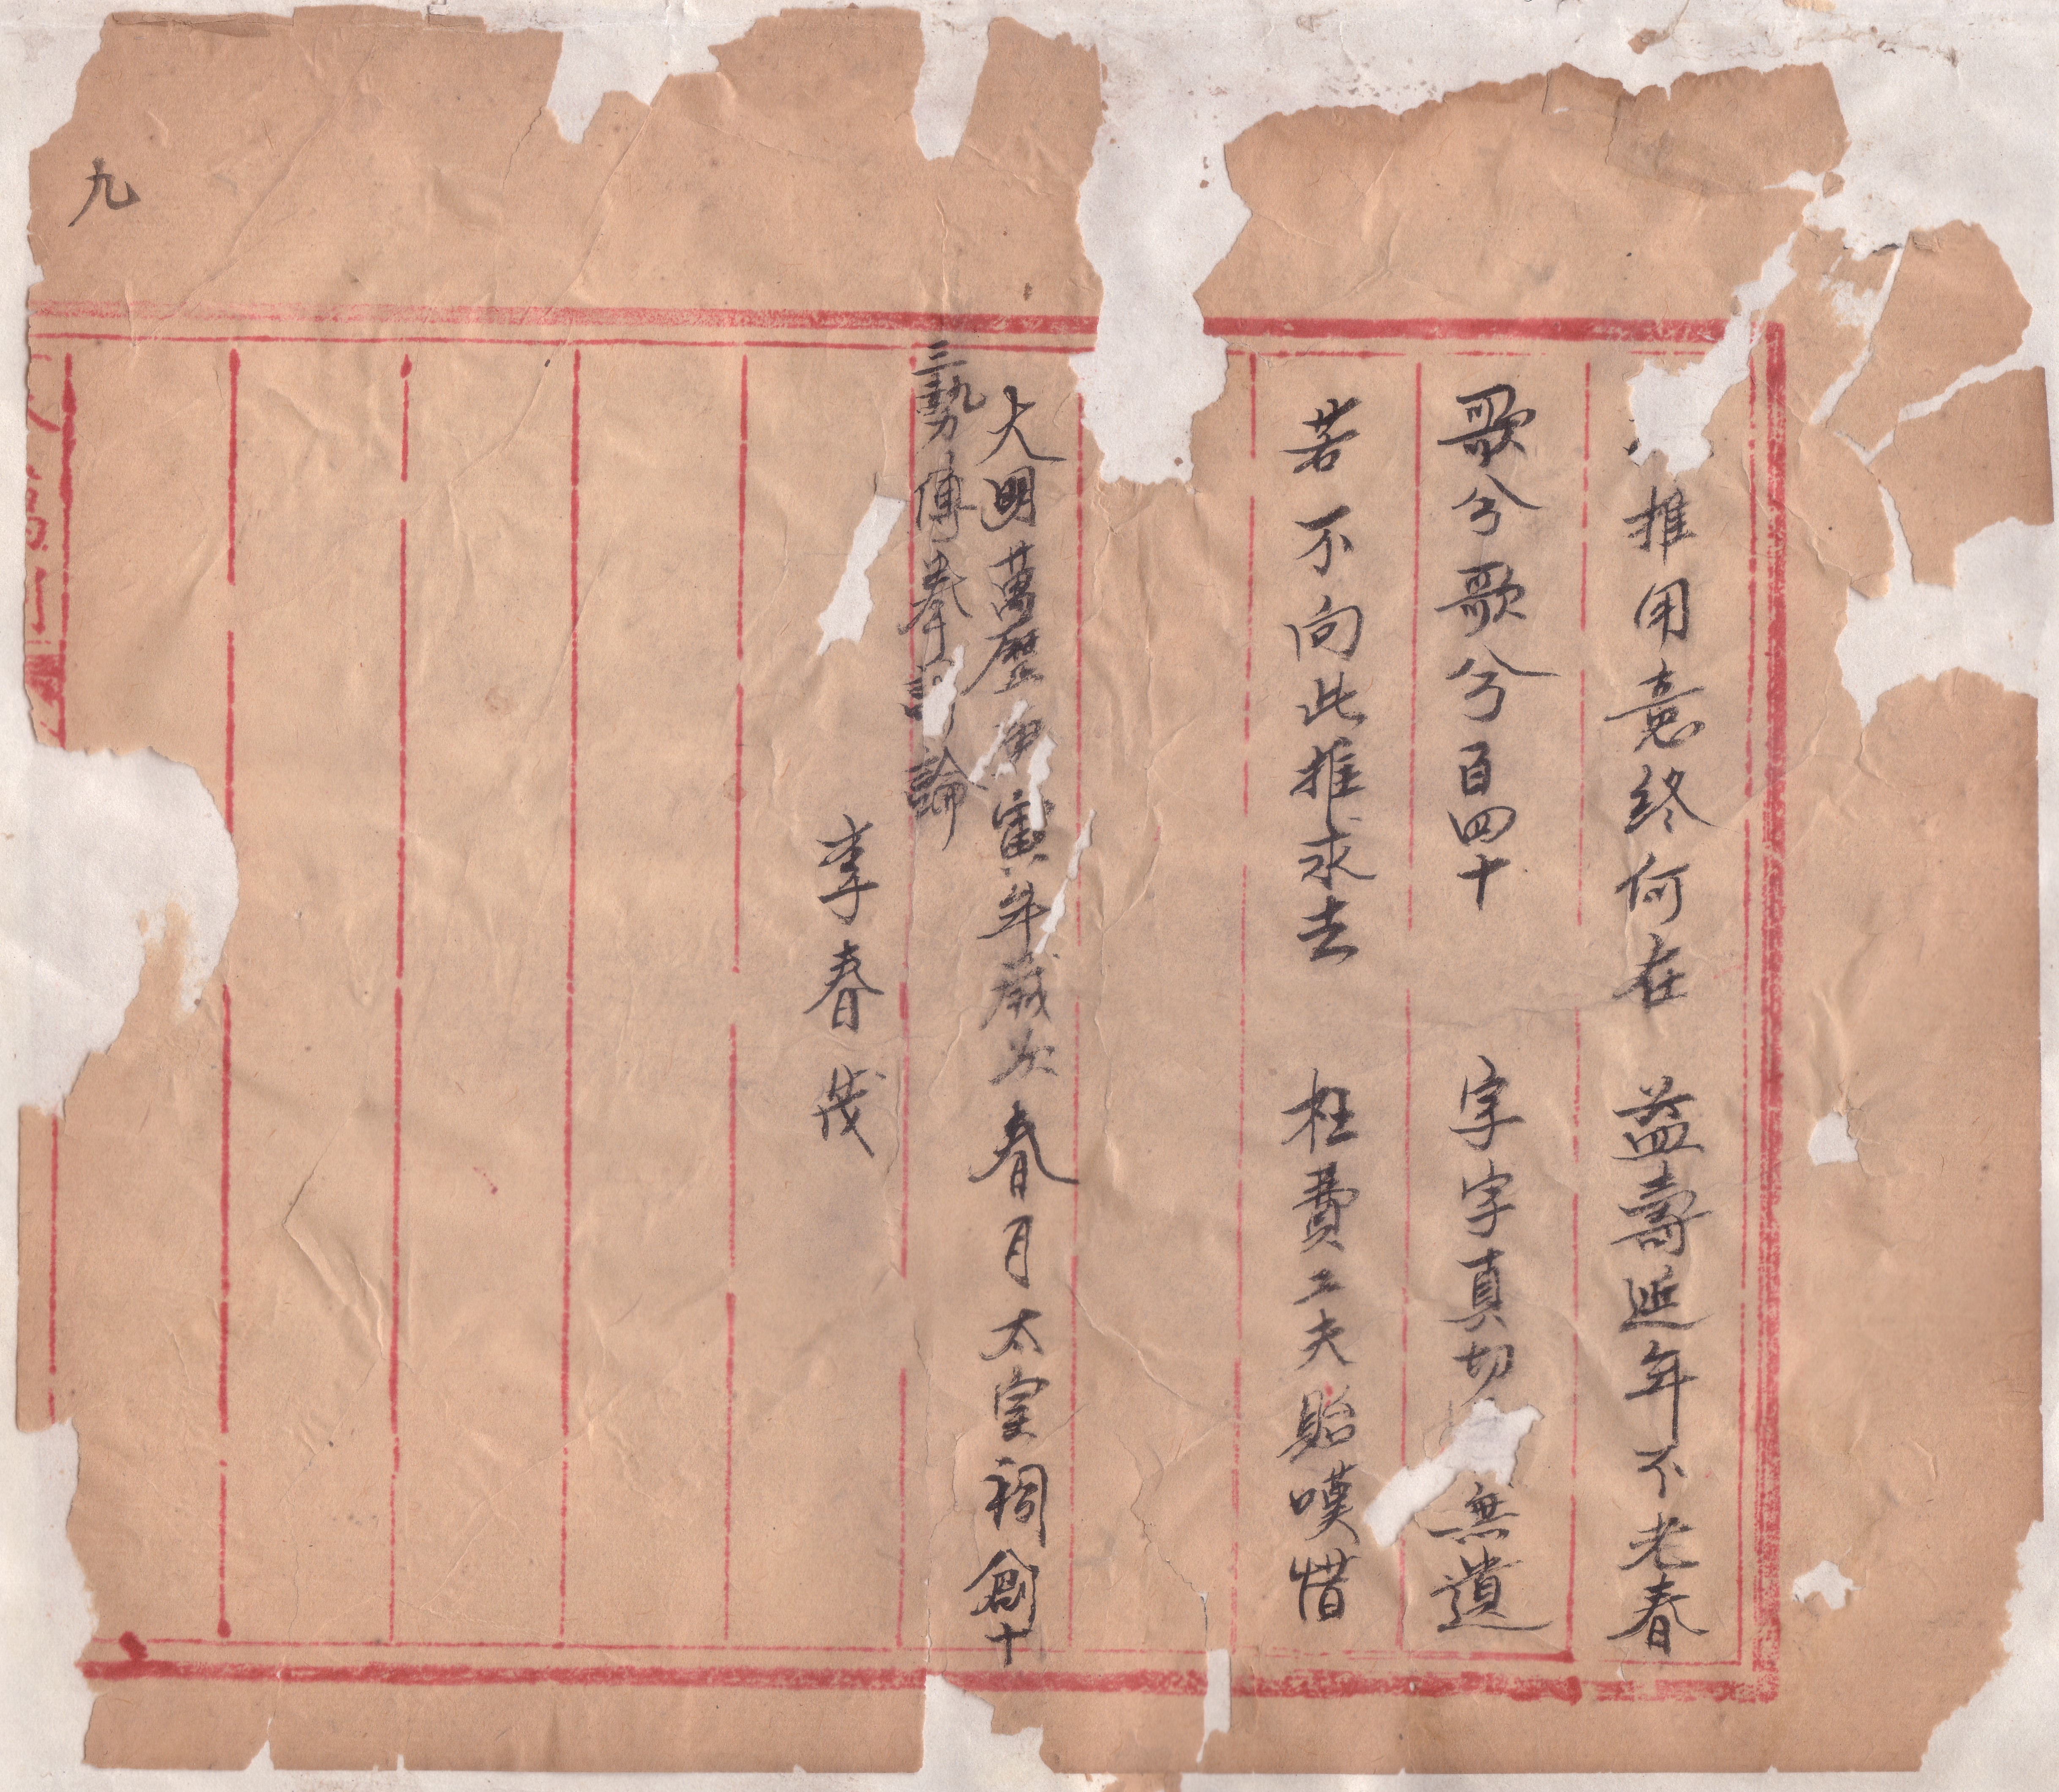 推用意終何在 益壽延年不老春
歌兮歌兮百四十 字字真切 無遺
若不向此推求去 枉費工夫貽嘆惜
大明萬歷庚寅年歲次春月太室祠創十
三勢傳拳 論
李春茂
九